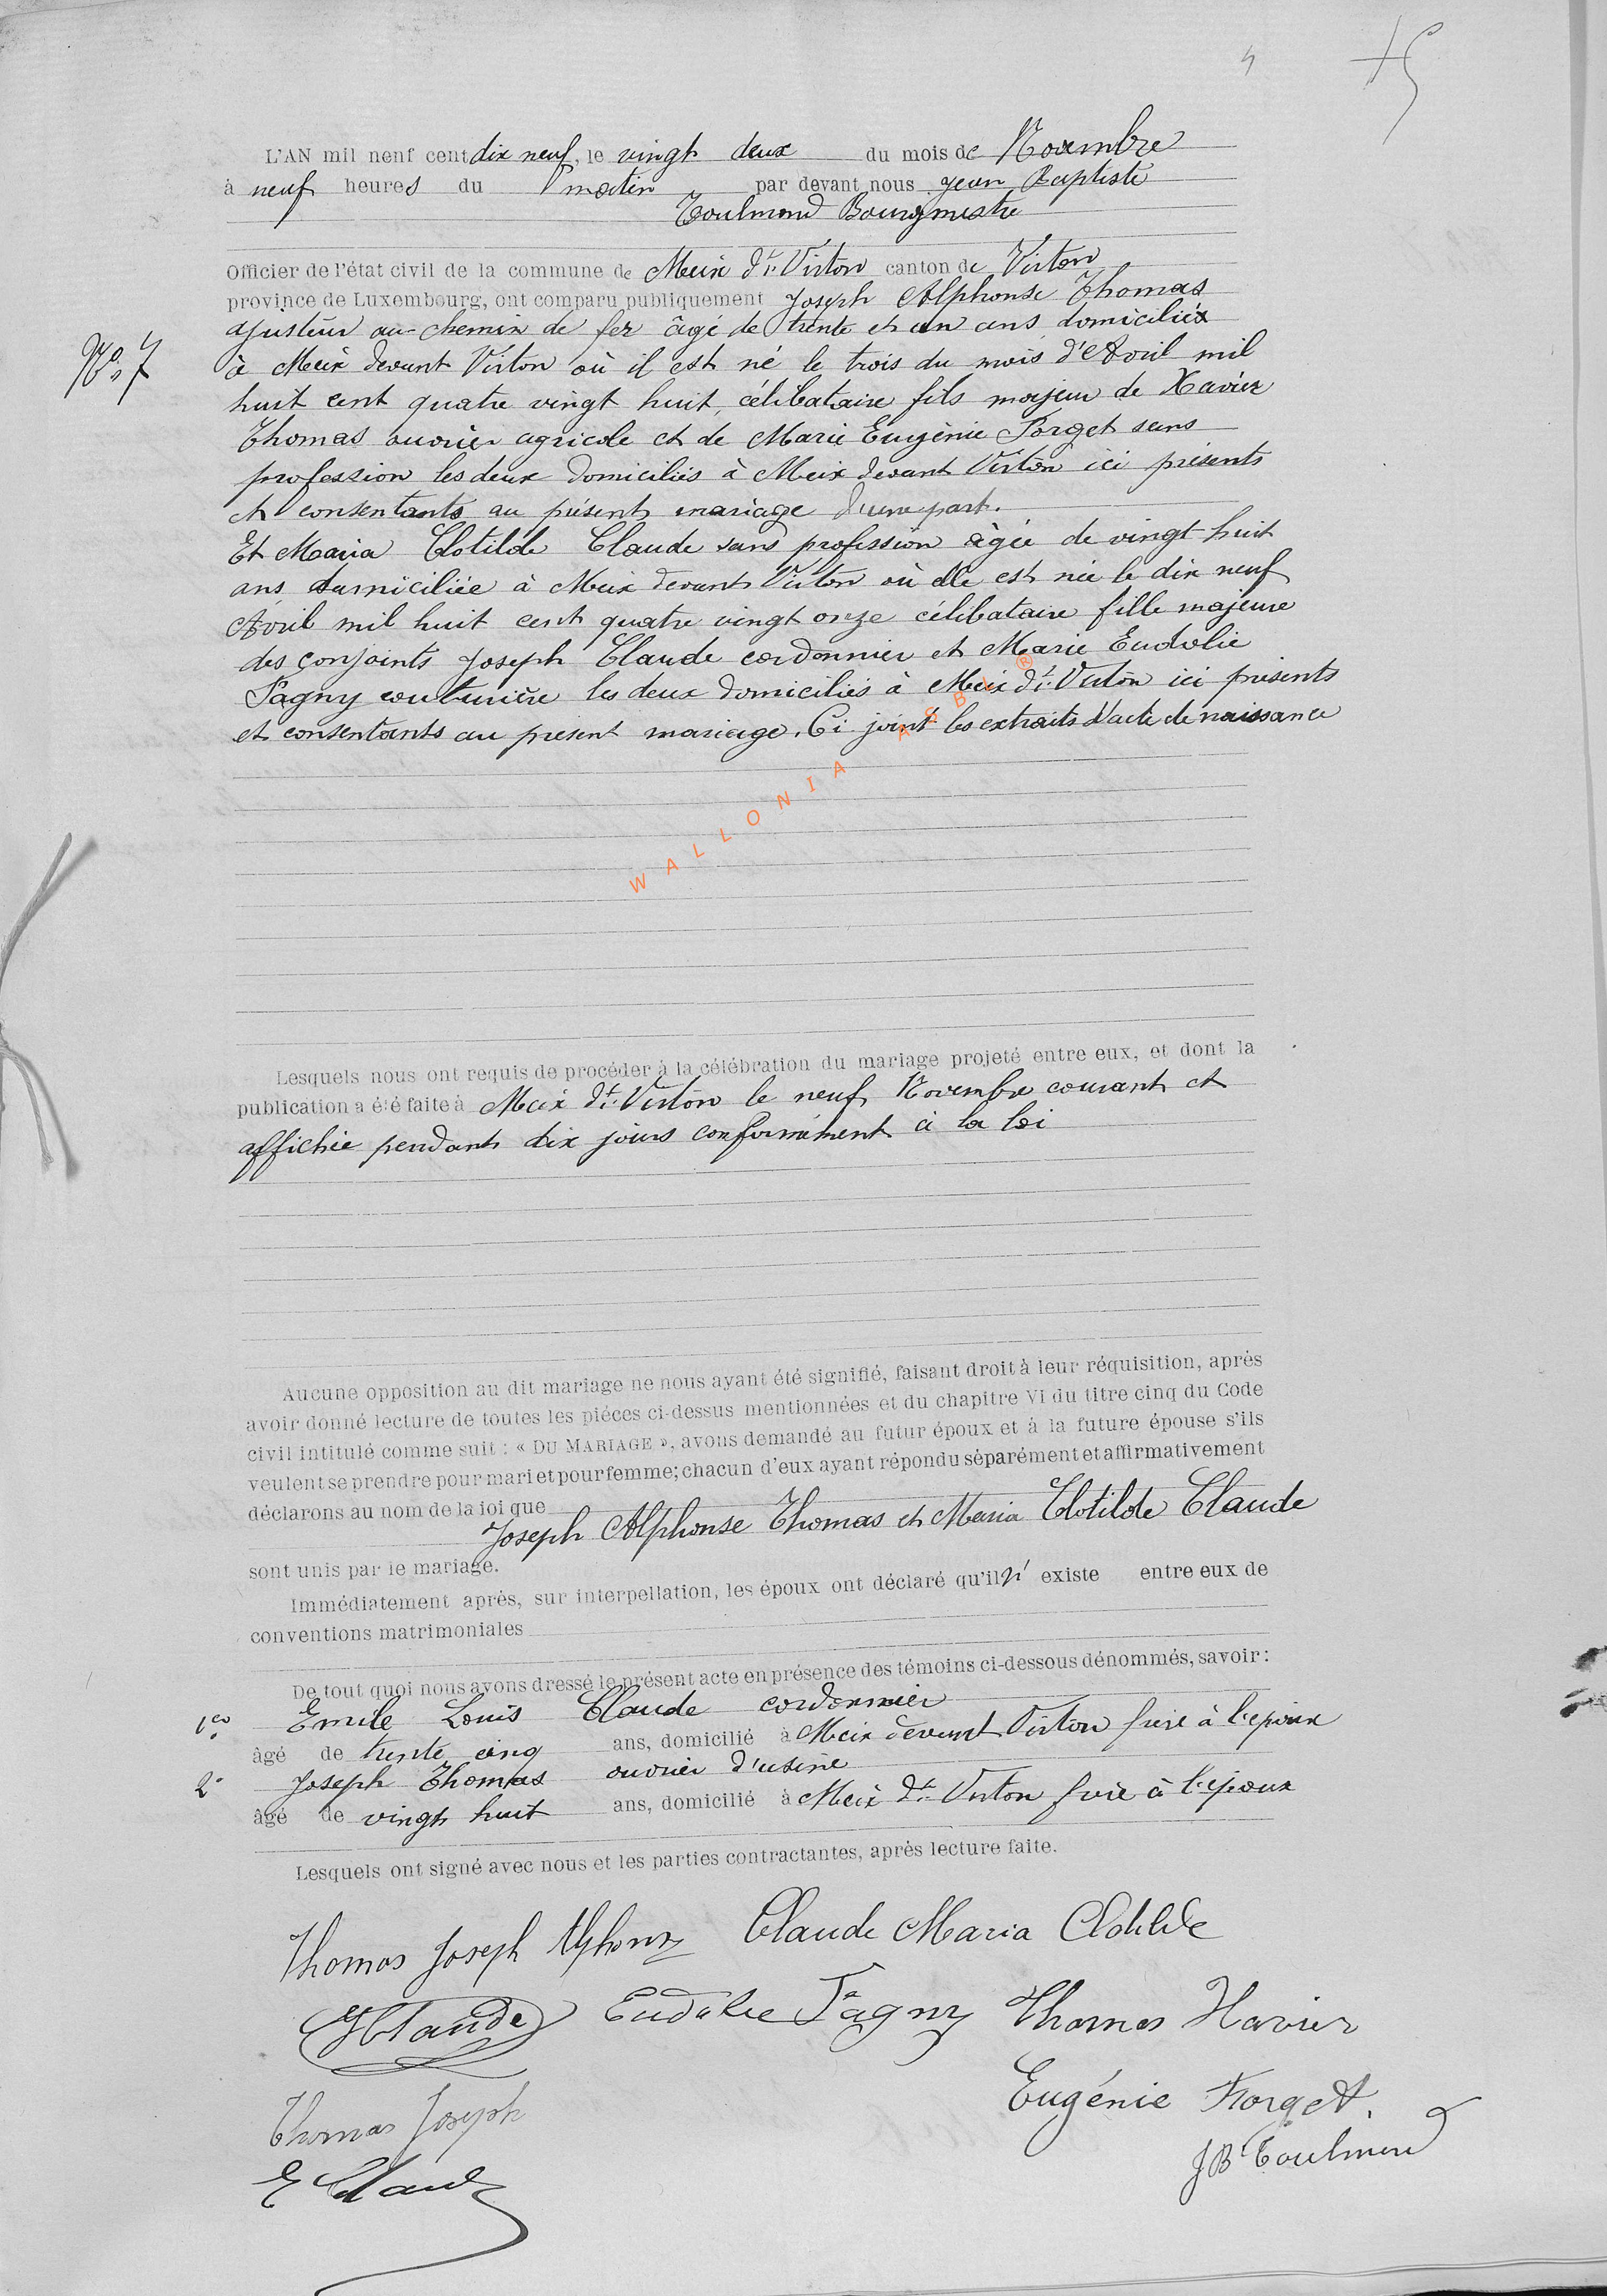 L'AN mil neuf cent dix neuf, le vingt deux du mois de Novembre
à neuf heures du matin par devant nous Jean Baptiste
Toulmond Bourgmestre
Officier de l'état civil de la commune de Meix dt Virton canton de Virton
province de Luxembourg, ont comparu publiquement Joseph Alphonse Thomas
ajusteur au chemin de fer âgé de trente et un ans domicilié
N° 7
à Meix devant Virton où il est né le trois du mois d'Avril mil
huit cent quatre vingt huit, célibataire fils majeur de Xavier
Thomas ouvrier agricole et de Marie Eugènie Forget sans
profession les deux domiciliés à Meix devant Virton ici présents
et consentants au présent mariage d'une part.
Et Maria Clotilde Claude sans profession âgée de vingt huit
ans domiciliée à Meix devant Virton où elle est née le dix neuf
Avril mil huit cent quatre vingt onze célibataire fille majeure
des conjoints Joseph Claude cordonnier et Marie Eudolie
Pagny couturière les deux domiciliés à Meix dt Virton ici présents
et consentants au present mariage. Ci joint les extraits d'acte de naissance
WALLONIA ASBL ®
Lesquels nous ont requis de procéder à la célébration du mariage projeté entre eux, et dont la
publication a été faite à Meix dt Virton le neuf Novembre courant et
affichée pendant dix jours conformément à la loi
Aucune opposition au dit mariage ne nous ayant été signifié, faisant droit à leur réquisition, après
avoir donné lecture de toutes les piéces ci-dessus mentionnées et du chapitre VI du titre cinq du Code
civil intitulé comme suit : « DU MARIAGE », avons demandé au futur époux et à la future épouse s'ils
veulent se prendre pour mari et pour femme; chacun d'eux ayant répondu séparément et affirmativement
déclarons au nom de la loi que
Joseph Alphonse Thomas et Maria Clotilde Claude
sont unis par le mariage.
Immédiatement après, sur interpellation, les époux ont déclaré qu'il n' existe entre eux de
conventions matrimoniales
De tout quoi nous avons dressé le présent acte en présence des témoins ci-dessous dénommés, savoir :
1er Emile Louis Claude cordonnier
âgé de trente cinq ans, domicilié à Meix devant Virton frère à l'epoux
2° Joseph Thomas ouvrier d'usine
âgé de vingt huit ans, domicilié à Meix dt Virton frère à l'epoux
Lesquels ont signé avec nous et les parties contractantes, après lecture faite.
Thomas Joseph Alphonse Claude Maria Clotilde
J Claude Eudolie Pagny Thomas Xavier
Eugénie Forget.
Thomas Joseph
JB Toulmond
E Claude